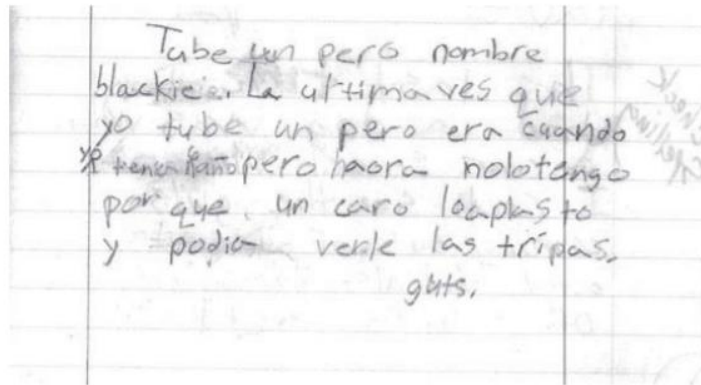 Tube un pero nombre
blackie. La ultima ves que
yo tube un pero era cuando
yo tenia año pero haora nolotengo
por que un caro loaplasto
y podia verle las tripas.
guts.
check
spelling